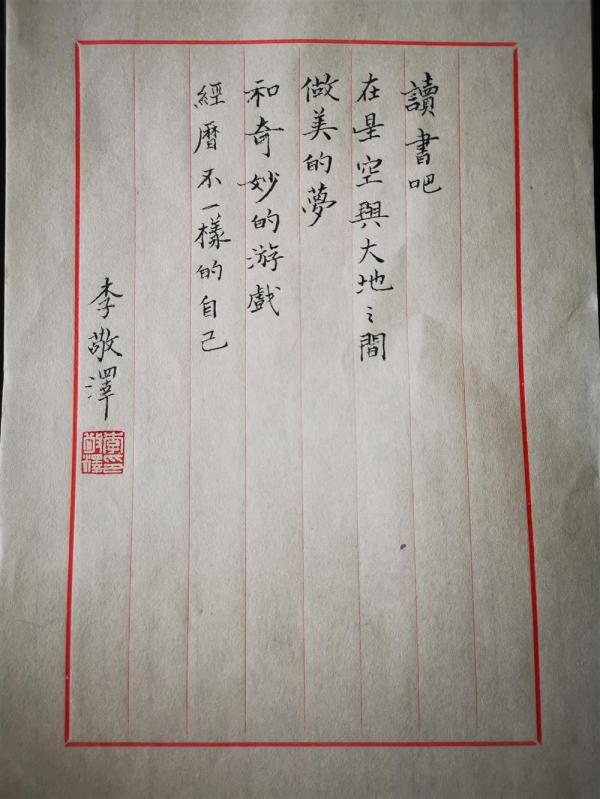 讀書吧
在星空與大地之間
做美的夢
和奇妙的游戲
經曆不一樣的自己
李敬澤
李印
敬澤